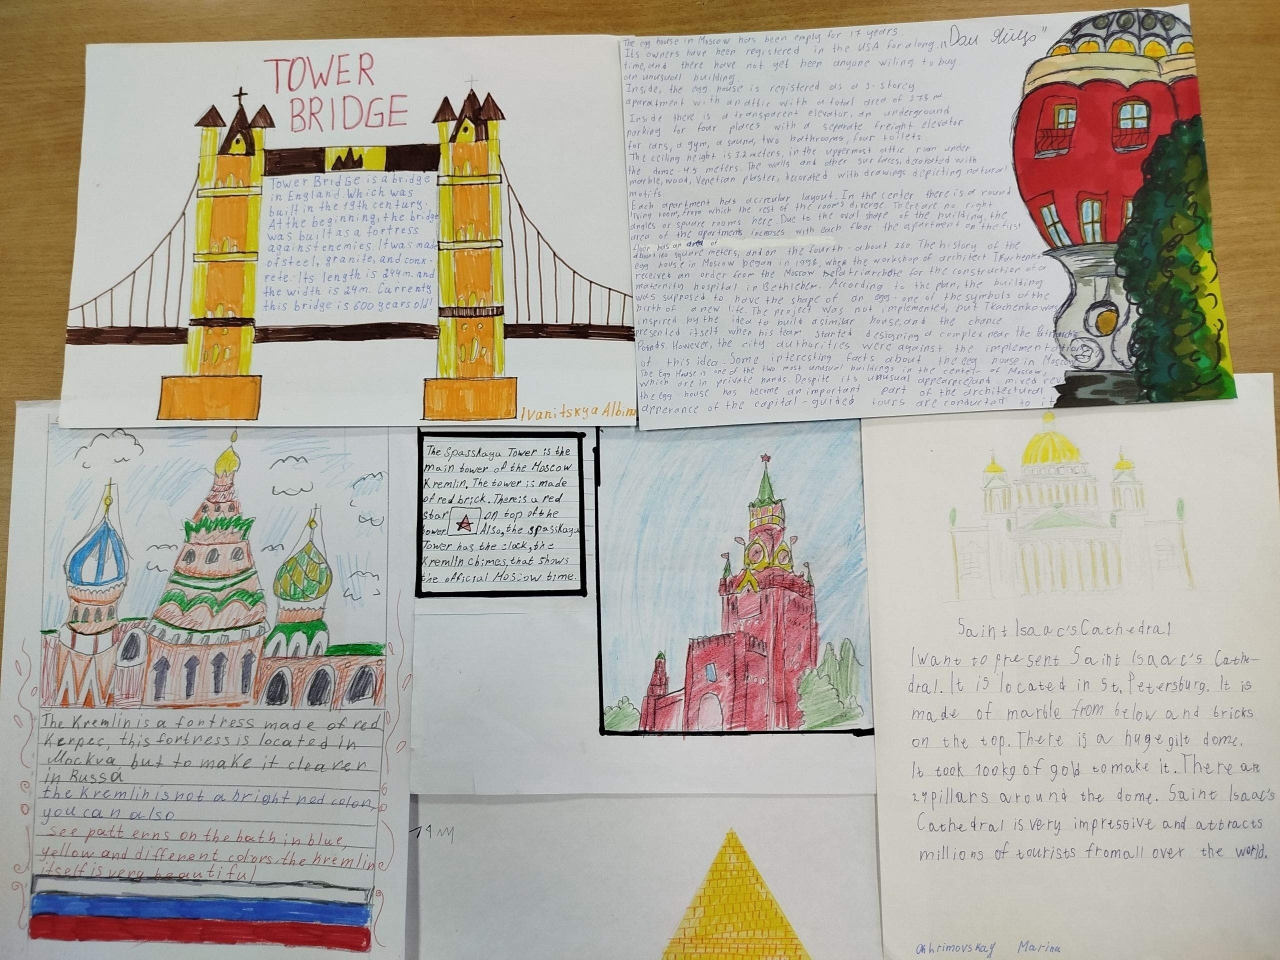 TOWER
BRIDGE
Tower Bridge is a bridge
in England which was
built in the 19th century.
At the beginning, the bridge
was built as a fortress
against enemies. It was made
of steel, granite, and conk-
rete. Its length is 244m. and
the width is 24m. Currently
this bridge is 600 years old!
Ivanitskya Albina
The egg house in Moscow has been emply for 17 years.
Its owners have been registered in the USA for a long
time, and there have not yet been anyone wiling to buy
an unusual building.
Inside, the egg house is registered as a
apartment with an attic with a total area of
Inside there is a transparent elevator, an underground
parking for four places with a separate freight elevator
for cars, a gym, a sauna, two bathrooms, four toilets
The ceiling height is 3.2 meters, in the uppermost attic room under
the dome 4.5 meters. The walls and other surfaces decorated with
marble, wood, Venetian plaster, decorated with drawings depicting natural
motifs.
Each apartment has a circular layout. In the center there is a round
living room, from which the rest of the rooms diverge. There are no right
angles or square rooms here. Due to the oval shape of the building, the
area of the apartments increases with each floor the apartment on the first
floor has an area of
about square meters, and on the fourth - about 260 The history of the
egg house in Moscow began in 1998, when the workshop of architect Tkachenko
receives an order from the Moscow for the construction of a
maternity hospital in Bethlehem. According to the plan, the building
was supposed to have the shape of an egg - one of the symbols of the
birth of a new life. The project was not implemented, but Tkachenko was
inspired by the idea to build a similar house, and the chance
presented itself when his team started designing a complex near the Patriarch's
Ponds. However, the city authorities were against the implementation
of this idea. Some interesting facts about the egg house in Moscow
The Egg House is one of the two most unusual buildings in the center of Moscow,
which are in private hands. Despite its unusual and mixed
the egg-house has become an important part of the architectural
apperance of the capital - guided tours are conducted to it
The Spasskaya Tower is the
main tower of the Moscow
Kremlin. The tower is made
of red brick. There is a red
star on top of the
tower. Also, the spasskaya
Tower has the clock, the
Kremlin chimes, that shows
the official Moscow time.
The Kremlin is a fortress made of red
Kerpec, this fortress is located in
Mockva but to make it clearer
in Russa
the Kremlin is not a bright red color,
you can also
see patt erns on the bath in blue,
yellow and different colors. the kremline
itself is very beautiful
Saint Isaac's Cathedral
I want to present Saint Isaac's Cathe-
dral. It is located in St. Petersburg. It is
made of marble from below and bricks
on the top. There is a huge gilt dome.
It took 100kg of gold to make it. There are
24 pillars around the dome. Saint Isaac's
Cathedral is very impressive and attracts
millions of tourists from all over the world.
Okhrimovskay Marina